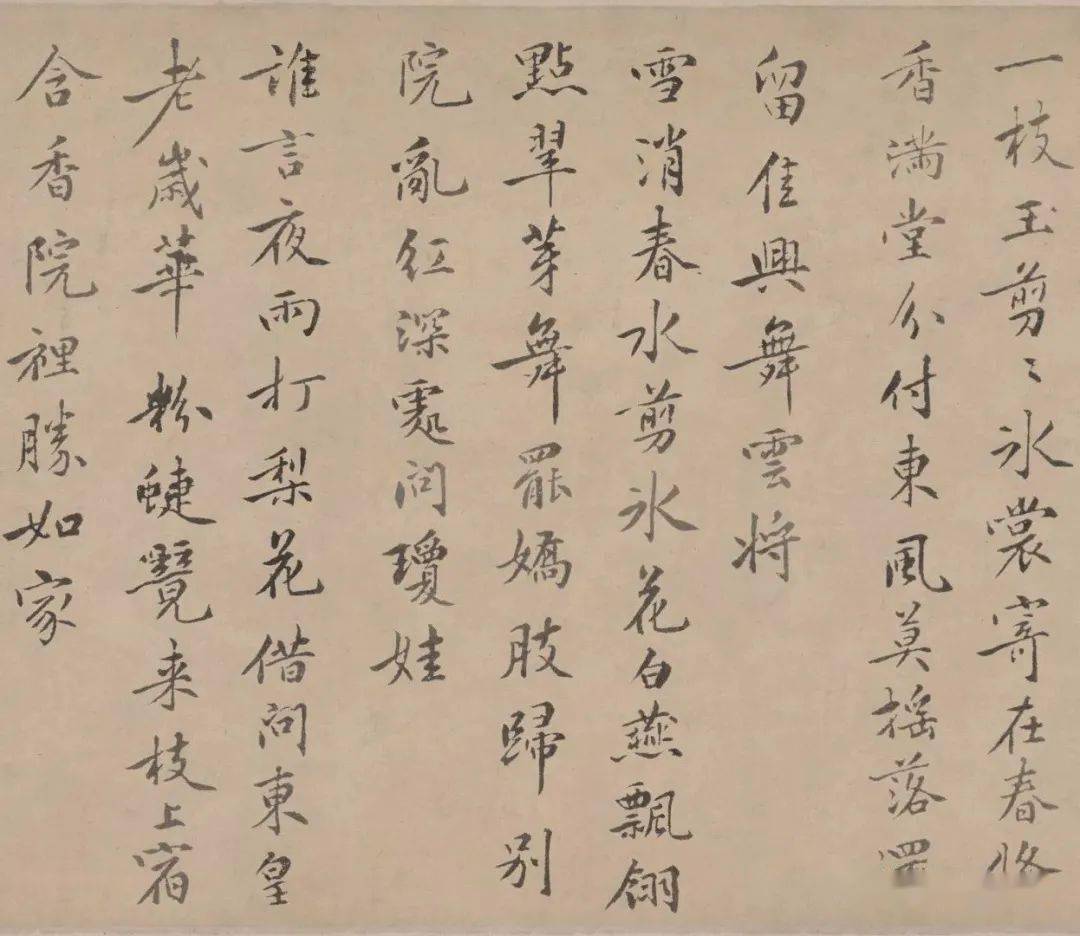 一枝玉剪〻氷裳寄在春
香滿堂分付東風莫摇落
留佳興舞雲將
雪消春水剪氷花白燕飄翎
點翠芽舞罷嬌肢歸別
院亂紅深處問瓊娃
誰言夜雨打梨花借問東皇
老歲華粉蜨覽来枝上宿
含香院裡勝如家